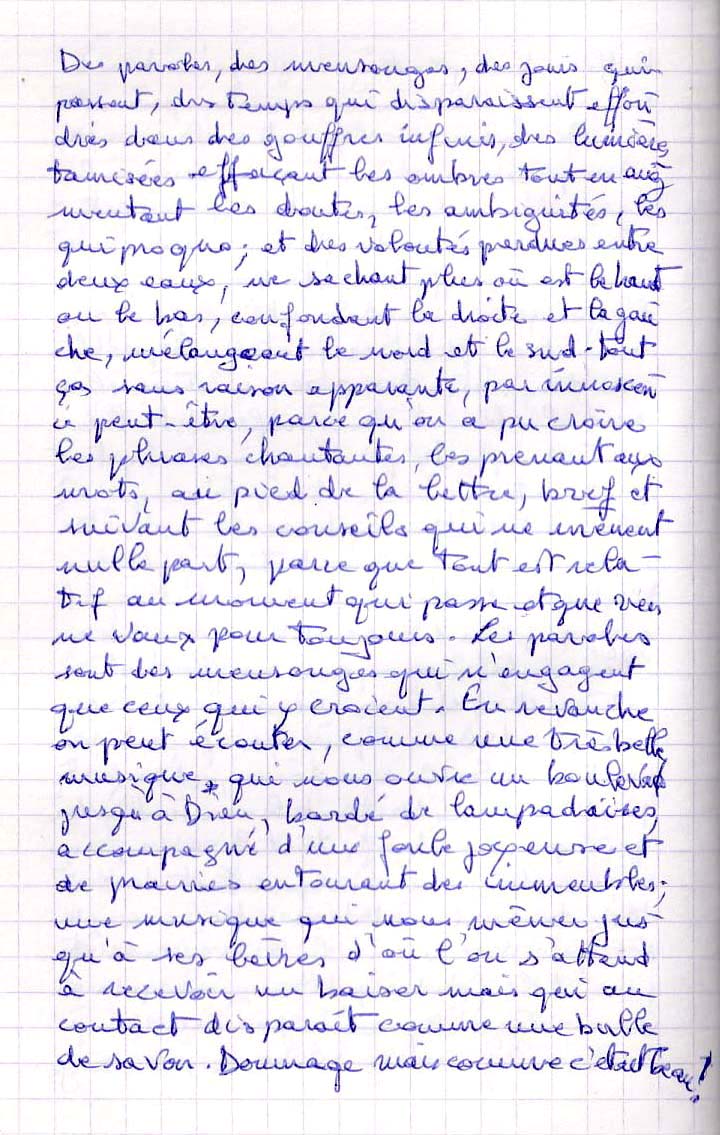 Des paroles, des mensonges, des jours qui
passent, des temps qui disparaissent effon
drés dans des gouffres infinis, des lumières
tamisées effaçant les ombres tout en aug
mentant les doutes, les ambiguités, les
quiproquo; et des volontés perdues entre
deux eaux, ne sachant plus où est le haut
ou le bas, confondant la droite et la gau
che, mélangeant le nord et le sud - tout
ça sans raison apparante, par innoscen
ce peut-être, parce qu'on a pu croire
les phrases chantantes, les prenant aux
mots, au pied de la lettre, bref et
suivant les conseils qui ne mènent
nulle part, parce que tout est rela-
tif au moment qui passe et que rien
ne vaux pour toujours. Les paroles
sont des mensonges qui n'engagent
que ceux qui y croient. En revanche
on peut écouter, comme une très belle
musique, qui nous ouvre un boulevard
jusqu'à Dieu, bordé de lampadaires,
accompagné d'une foule joyeuse et
de prairies entourant des immeubles;
une musique qui nous mène jus
qu'à ses lèvres d'où l'on s'attend
à recevoir un baiser mais qui au
contact disparaît comme une bulle
de savon. Dommage mais comme c'était beau!